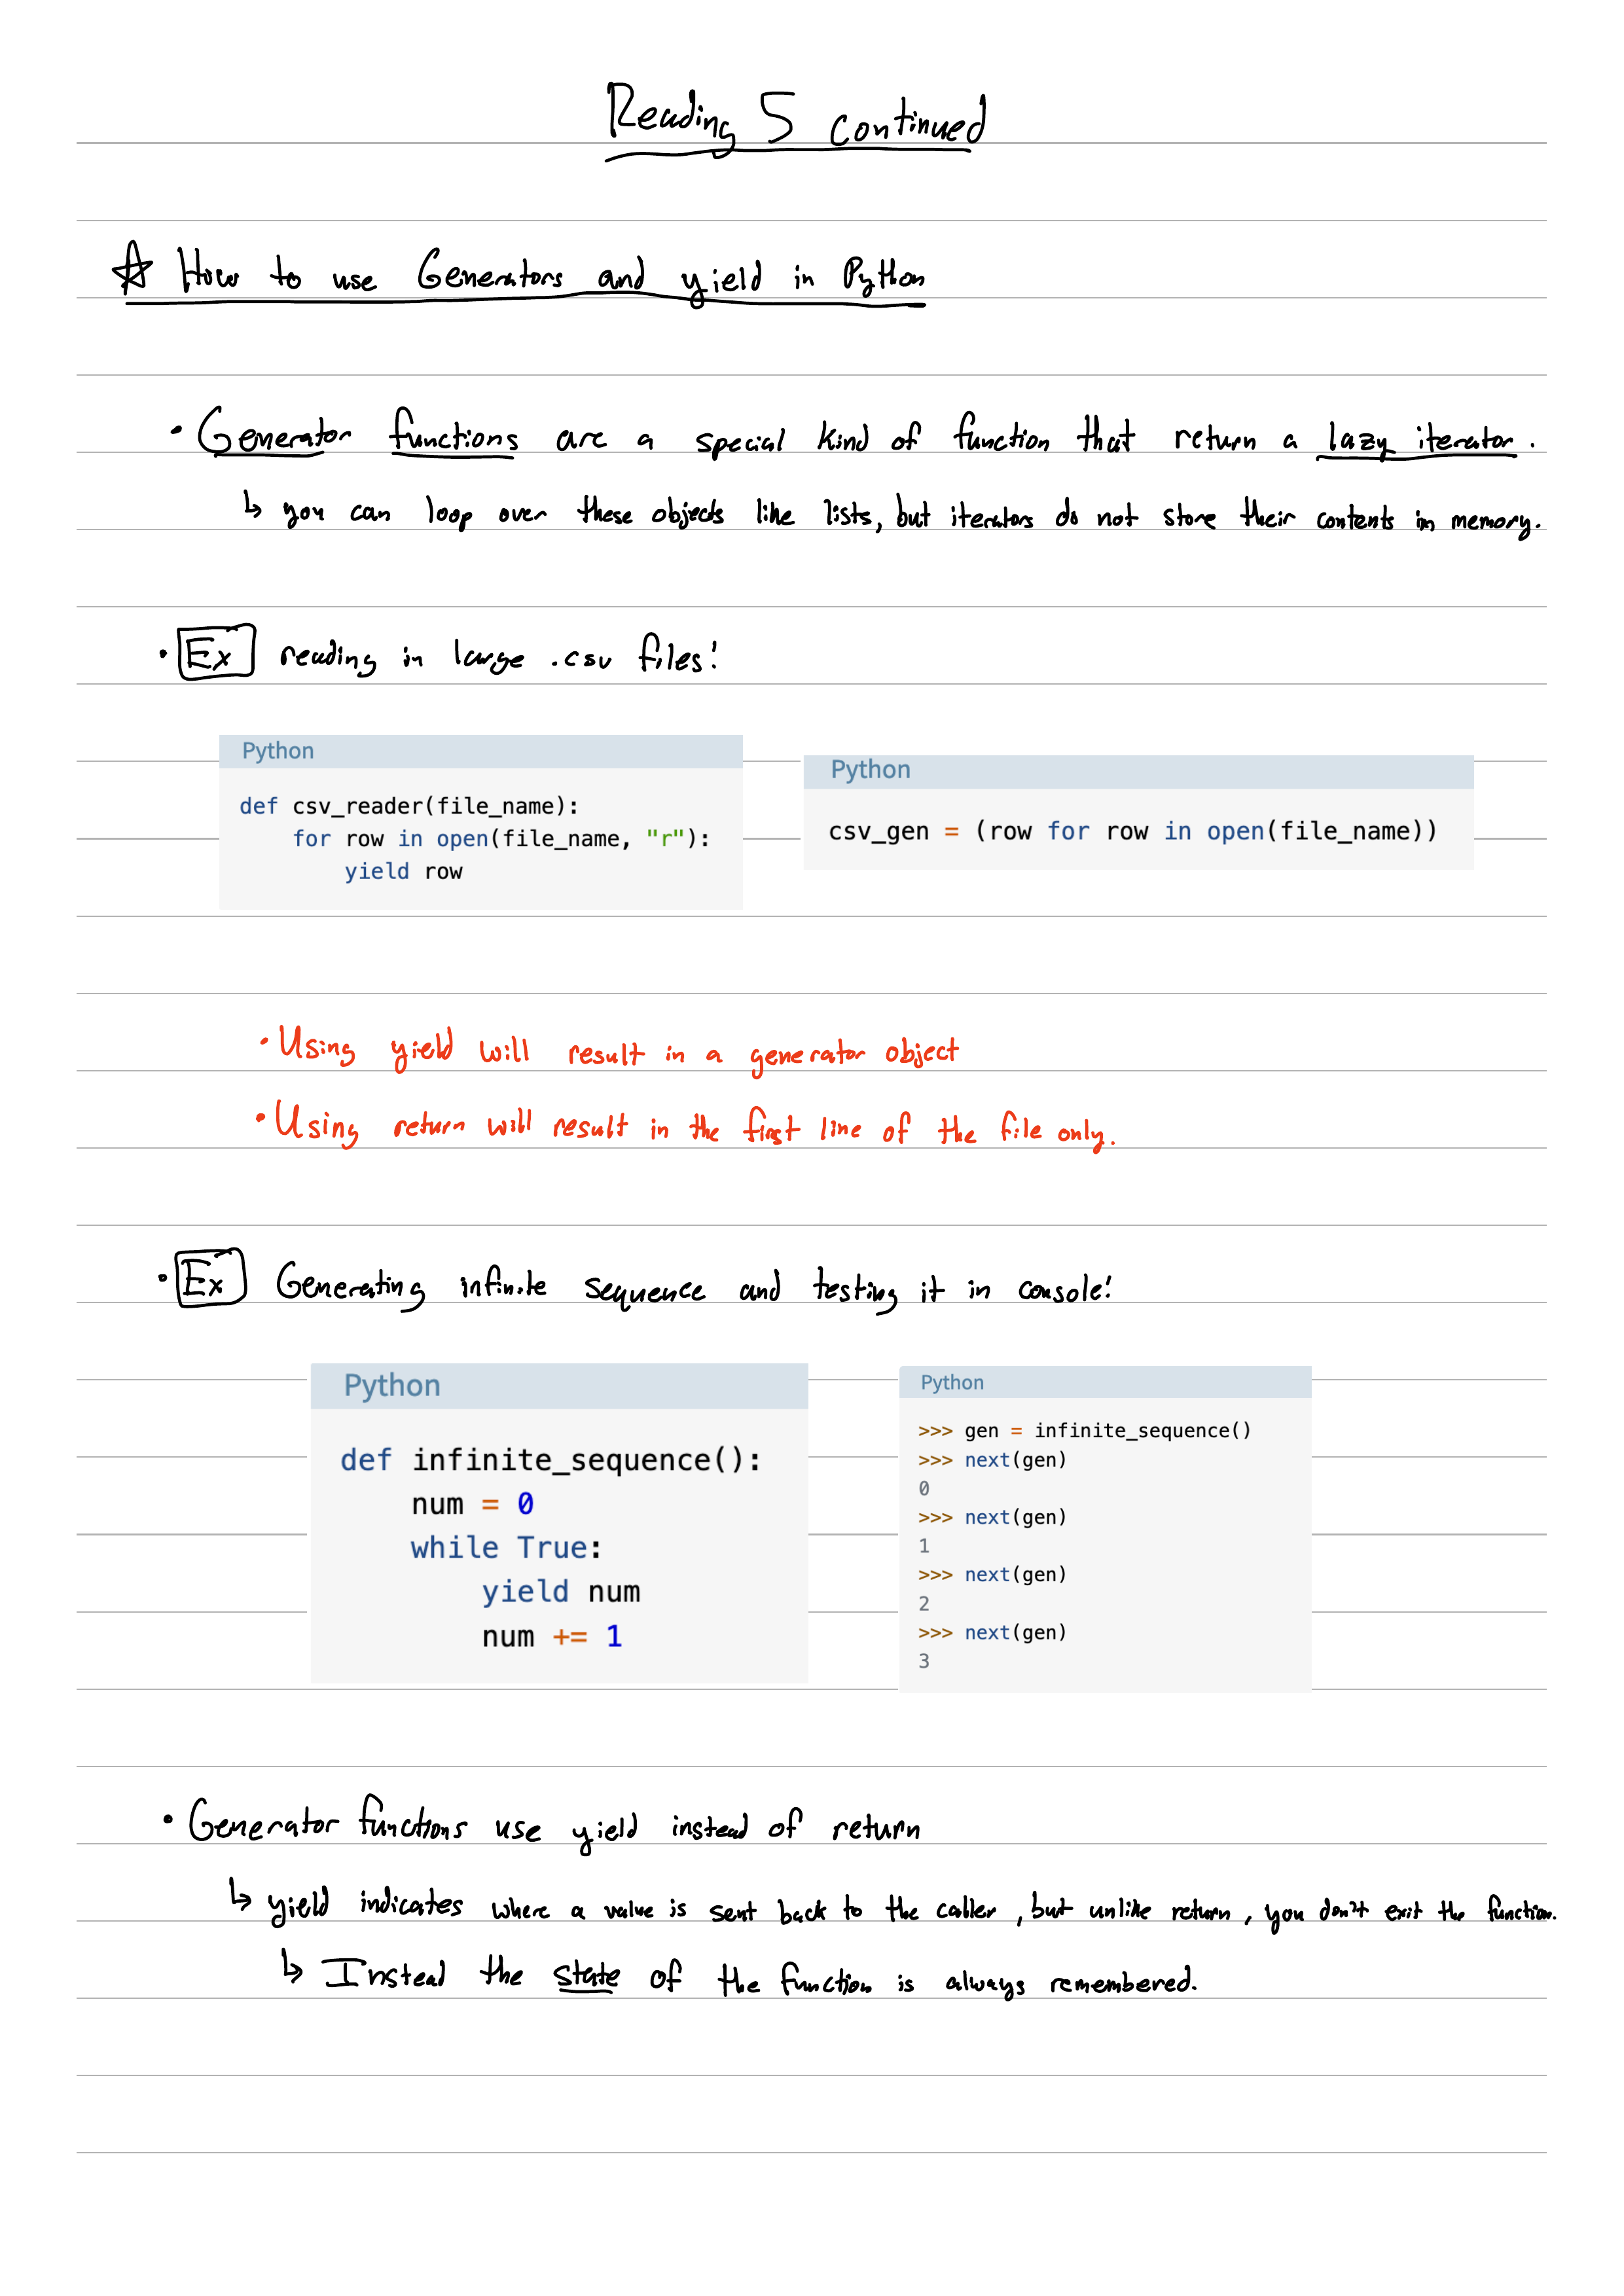 Reading 5 continued
☆ How to use Generators and yield in Python
• Generator functions are a special kind of function that return a lazy iterator.
↳ you can loop over these objects like lists, but iterators do not store their contents in memory.
• Ex reading in large .csv files!
Python
def csv_reader(file_name):
    for row in open(file_name, "r"):
        yield row
Python
csv_gen = (row for row in open(file_name))
• Using yield will result in a generator object
• Using return will result in the first line of the file only.
• Ex Generating infinite sequence and testing it in console!
Python
def infinite_sequence():
    num = 0
    while True:
        yield num
        num += 1
Python
>>> gen = infinite_sequence()
>>> next(gen)
0
>>> next(gen)
1
>>> next(gen)
2
>>> next(gen)
3
• Generator functions use yield instead of return
↳ yield indicates where a value is sent back to the caller, but unlike return, you don't exit the function.
↳ Instead the state of the function is always remembered.